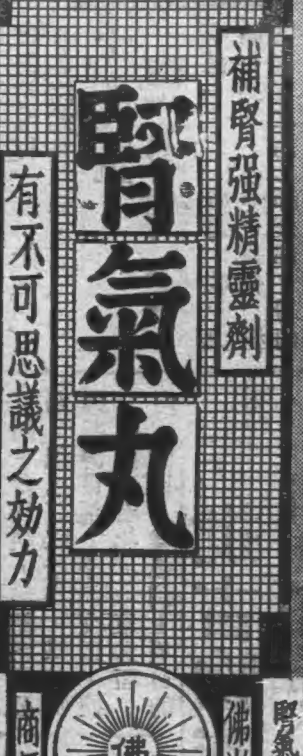 補腎强精靈劑
腎氣丸
有不可思議之効力
腎氣
佛
佛
商